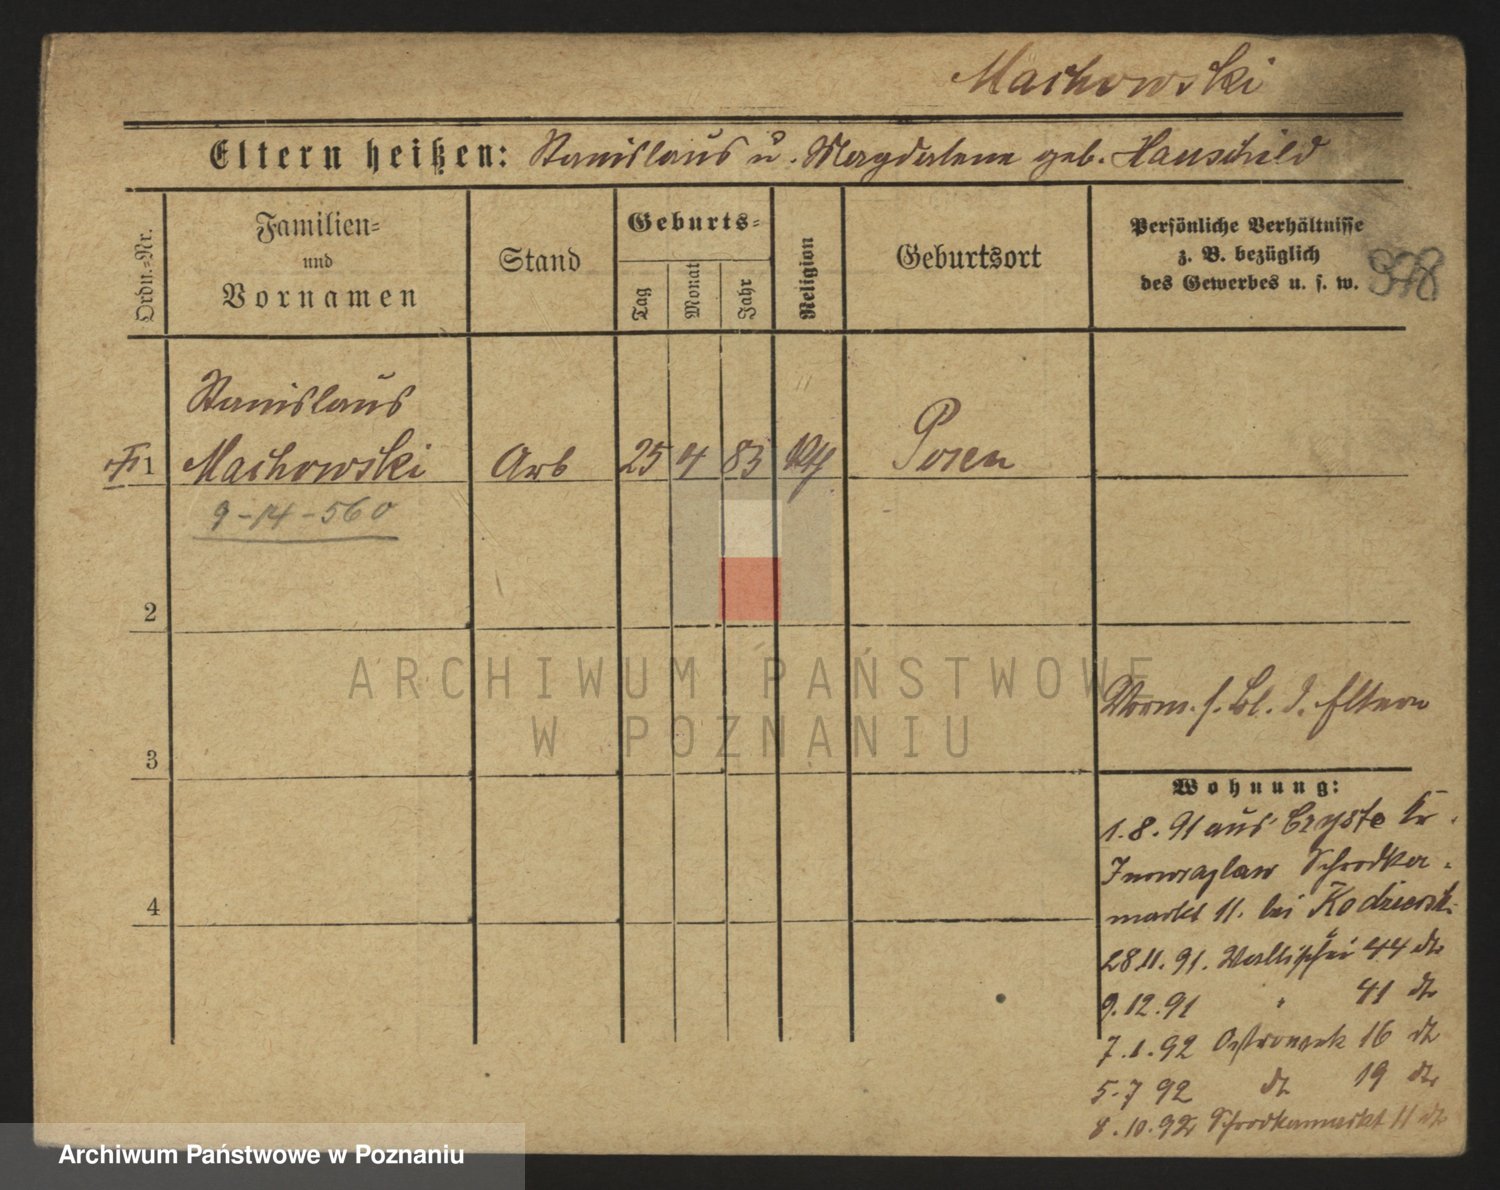 Machowski
Eltern heißen: Stanislaus u. Magdalene geb. Hauschild
Ordn.-Nr.
Familien-
und
Vornamen
Stand
Geburts-
Tag
Monat
Jahr
Religion
Geburtsort
Persönliche Verhältnisse
z. B. bezüglich
des Gewerbes u. s. w.
378
Stanislaus
1 Machowski Arb 25 4 83 kth Posen
9-14-560
2
ARCHIWUM PAŃSTWOWE
W POZNANIU
Vorm. s. Bl. d. Eltern
3
Wohnung:
1.8.91 aus Czyste Kr.
Inowrazlaw Schrodka-
markt 11. bei
4
28.11.91. Wallischei 44 do
9.12.91 " 41 do
7.1.92 Ostrowek 16 do
5.7 92 do 19 do
8.10.92 Schrodkamarkt 11 do
Archiwum Państwowe w Poznaniu